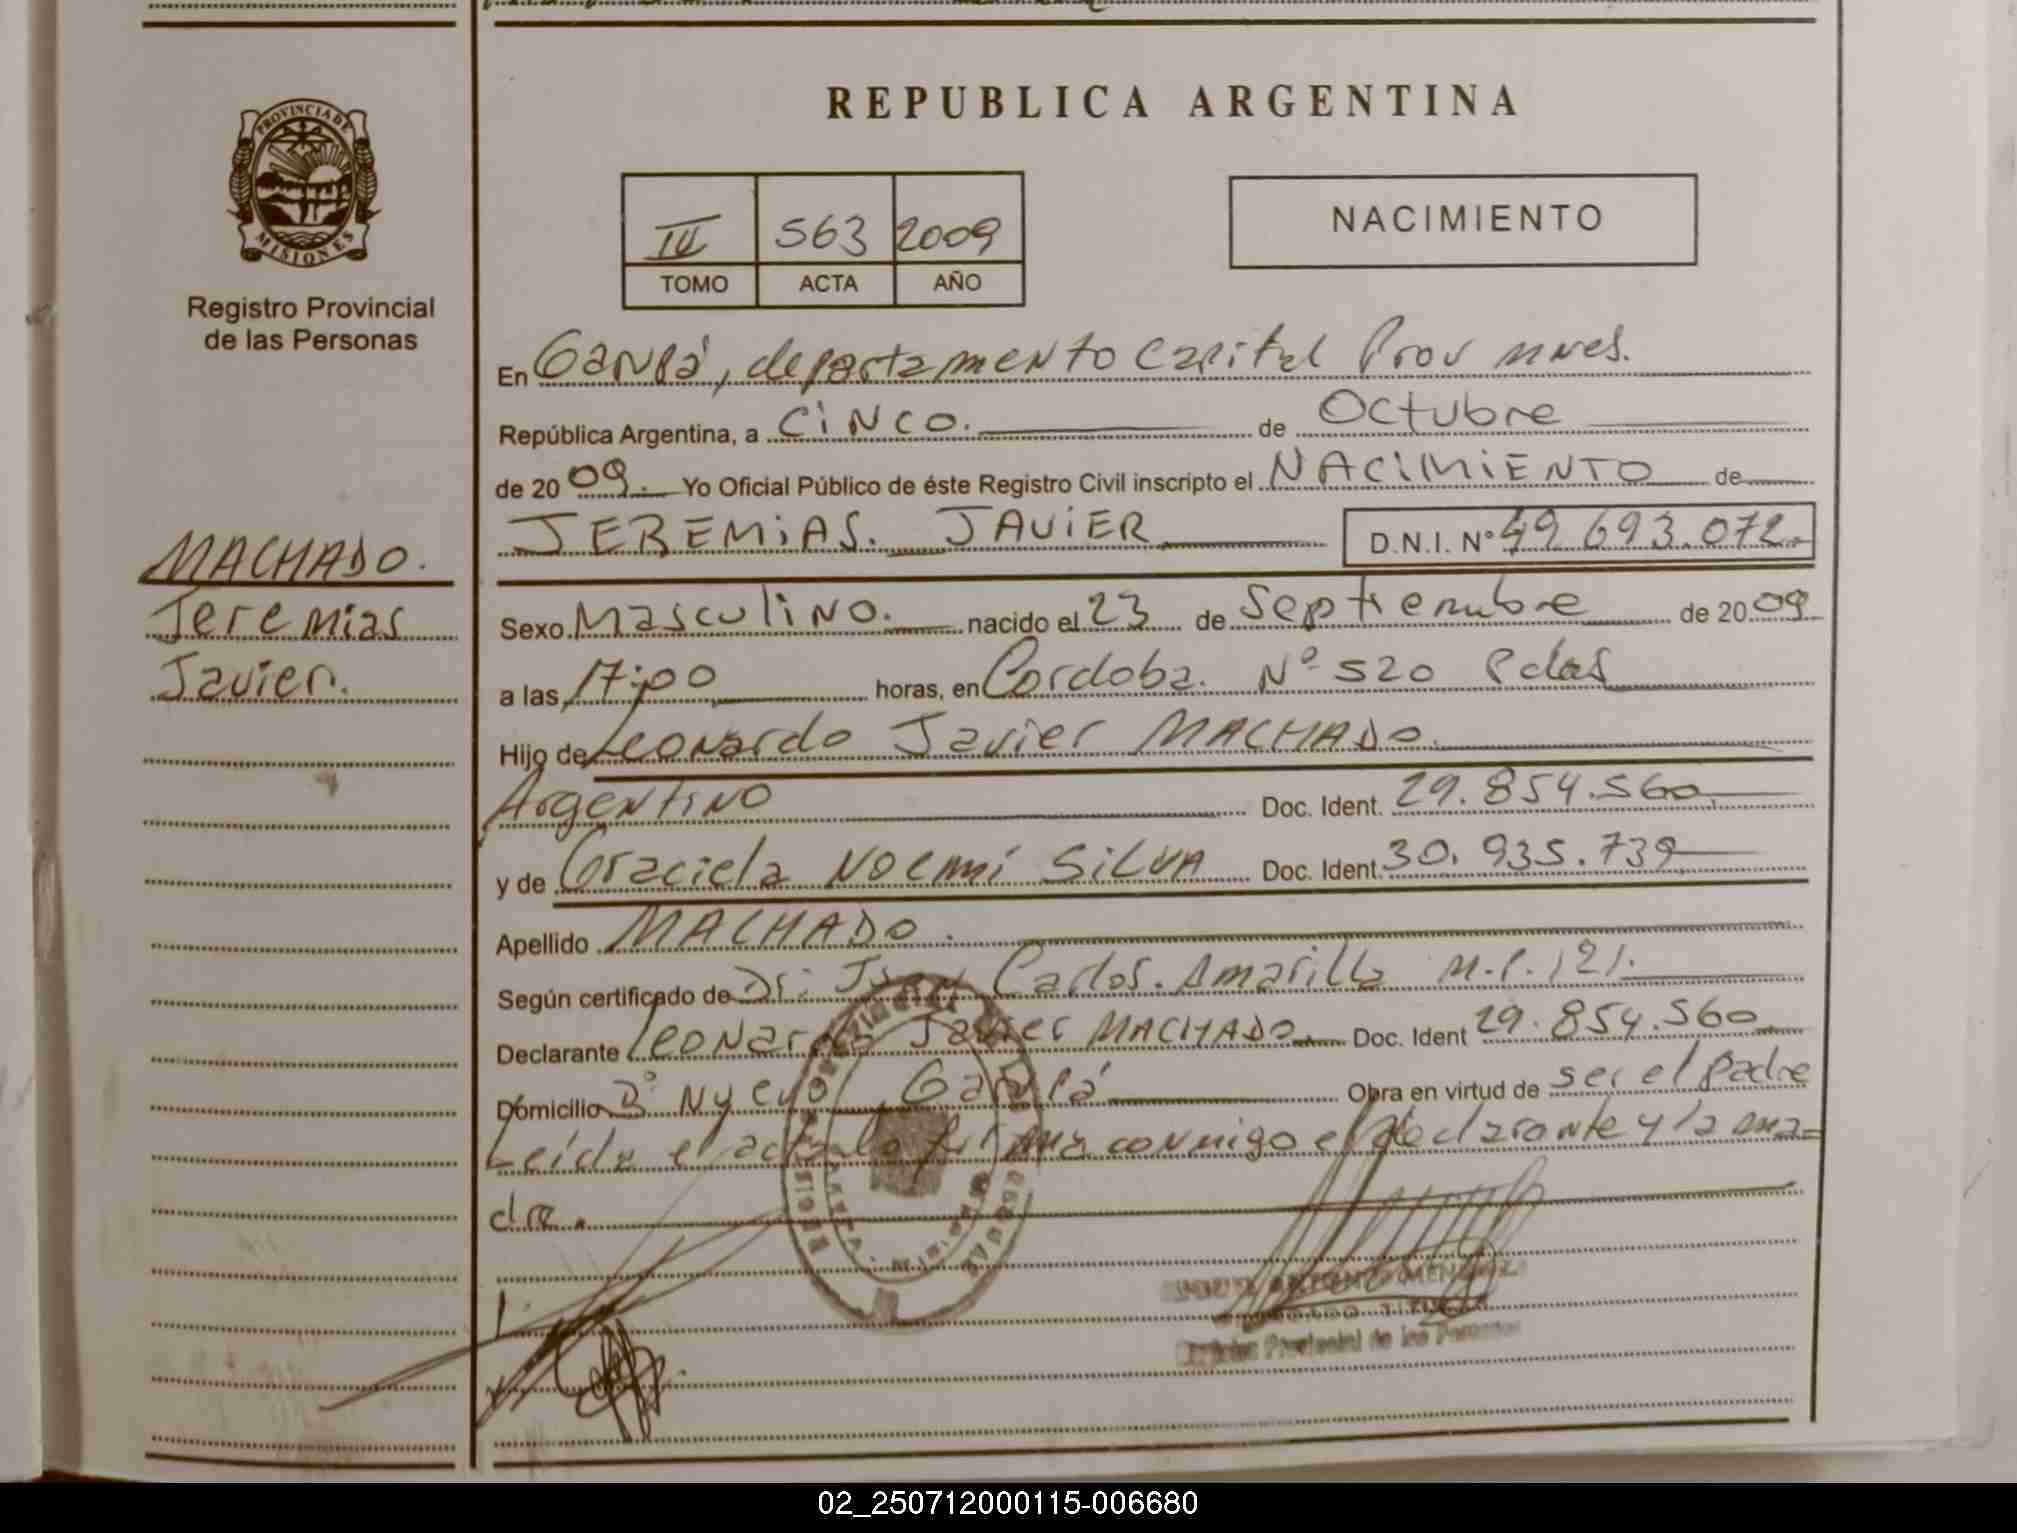 PROVINCIA DE
MISIONES
Registro Provincial
de las Personas
MACHADO.
Jeremias
Javier.
REPUBLICA ARGENTINA
III 563 2009
TOMO ACTA AÑO
NACIMIENTO
En Garupá, departamento Capital Prov mnes.
República Argentina, a CiNCO. de Octubre
de 2009. Yo Oficial Público de éste Registro Civil inscripto el NACIMIENTO de
JEREMiAS. JAViER D.N.I. Nº 49 693.072.
Sexo Masculino. nacido el 23 de Septiembre de 2009
a las 17:00 horas, en Cordoba. Nº 520 Pdas
Hijo de Leonardo Javier MACHADO.
Argentino Doc. Ident. 29.854.560
y de Graciela Noemí SiLVA Doc. Ident. 30.935.739
Apellido MACHADO.
Según certificado de Dr: Juan Carlos. Amarilla M.P. 121.
Declarante Leonardo Javier MACHADO. Doc. Ident 29.854.560
Domicilio Bº Nuevo Garupá Obra en virtud de ser el padre
Leída el acta la firma conmigo el declarante y la ma=
dre.
MENDEZ
TITULAR
Provincial de las Personas
02_250712000115-006680